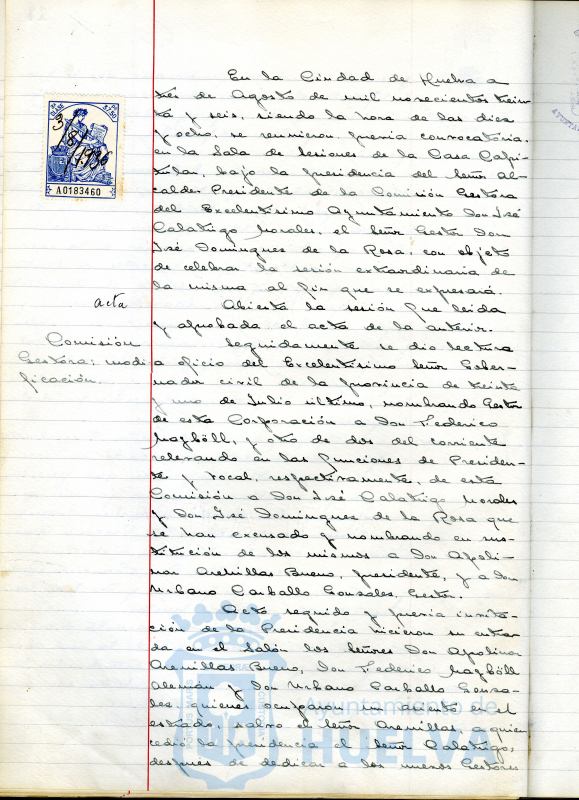 En la Ciudad de Huelva a
tres de Agosto de mil novecientos trein-
ta y seis, siendo la hora de las diez
y ocho, se reunieron, previa convocatoria,
en la Sala de Sesiones de la Casa Capi-
tular, bajo la presidencia del Señor Al-
calde Presidente de la Comisión Gestora
del Excelentísimo Ayuntamiento Don José
Calatrigo Morales, el Señor Gestor Don
José Domingues de la Rosa, con objeto
de celebrar la sesión extraordinaria de
la misma al fin que se expresará.
acta
Abierta la sesión fue leida
y aprobada el acta de la anterior.
Comisión
Gestora: modi-
ficación.
Seguidamente se dio lectura
a oficio del Excelentísimo Señor Gober-
nador civil de la provincia de treinta
y uno de Julio último, nombrando Gestor
de esta Corporación a Don Federico
Mayböll, y otro de dos del corriente
relevando en las funciones de Presiden-
te y vocal, respectivamente, de esta
Comisión a Don José Calatrigo Morales
y Don José Domingues de la Rosa que
se han excusado y nombrando en sus-
titución de los mismos a Don Apoli-
nar Arenillas Bueno, presidente, y a Don
Urbano Carballo Gonzales, Gestor.
Acto seguido y previa invita-
ción de la Presidencia hicieron su entra-
da en el Salón los Señores Don Apolinar
Arenillas Bueno, Don Federico Mayböll
Alemán y Don Urbano Carballo Gonza-
les, quienes ocuparon un asiento en el
estrado, salvo el Señor Arenillas, a quien
cedió la presidencia el Señor Calatrigo,
después de dedicar a los nuevos Gestores
3/8/1936
A0183460
Ayuntamiento de
HUELVA